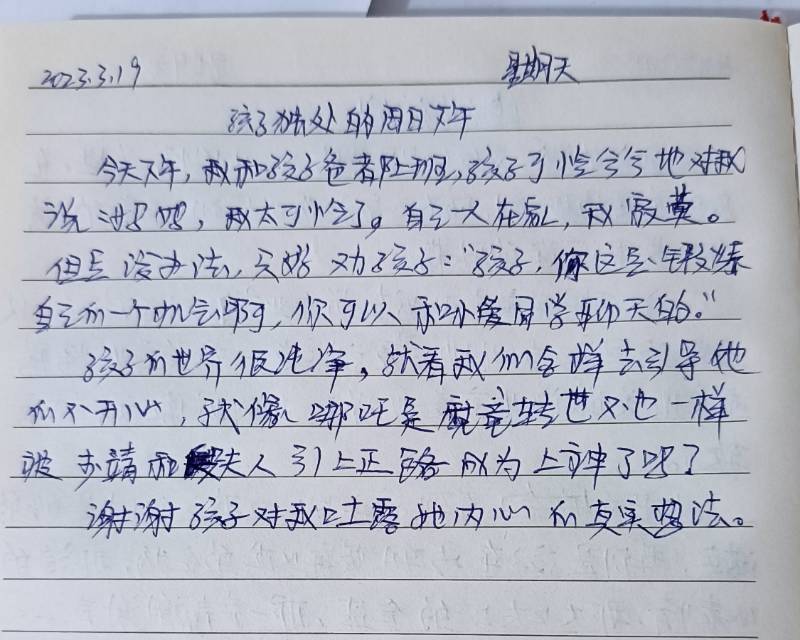 2023.3.19 星期天
孩子独处的周日下午
今天下午，我和孩子爸都上班，孩子可怜兮兮地对我
说：妈妈，我太可怜了。自己一人在家，我寂寞。
但是没办法，只好劝孩子："孩子，你这是锻炼
自己的一个机会啊，你可以和小爱同学聊天的。"
孩子的世界很纯净，就看我们怎样去引导他
们不开心，就像哪吒是魔童转世不也一样
被李靖和夫人引上正路成为上神了吗？
谢谢孩子对我吐露她内心的真实想法。